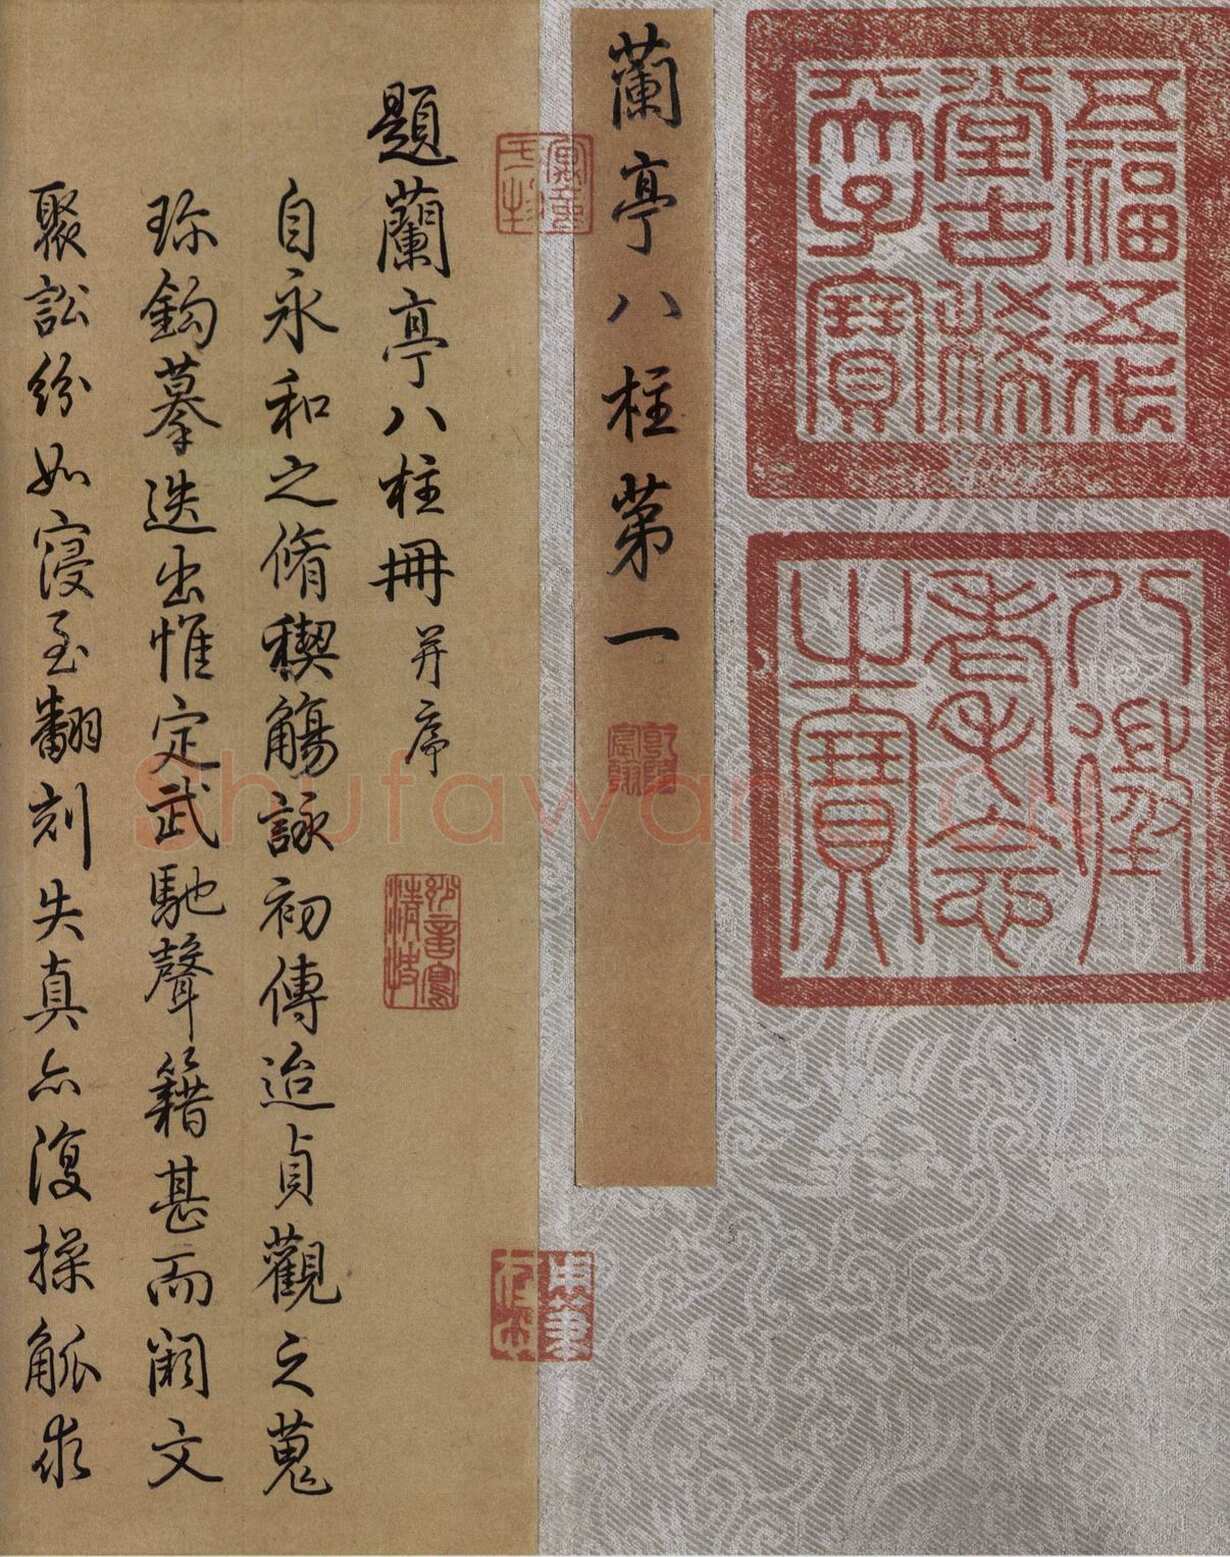 五福五代
堂古稀
天子寶
八徵
耄念
之寶
蘭亭八柱第一
乾隆
宸翰
用筆
在心
題蘭亭八柱冊并序
妙意寫
清波
自永和之脩稧觴詠初傳迨貞觀之蒐
珎鈎摹迭出惟定武馳聲籍甚而闕文
聚訟紛如寖至翻刻失真亦復操觚求